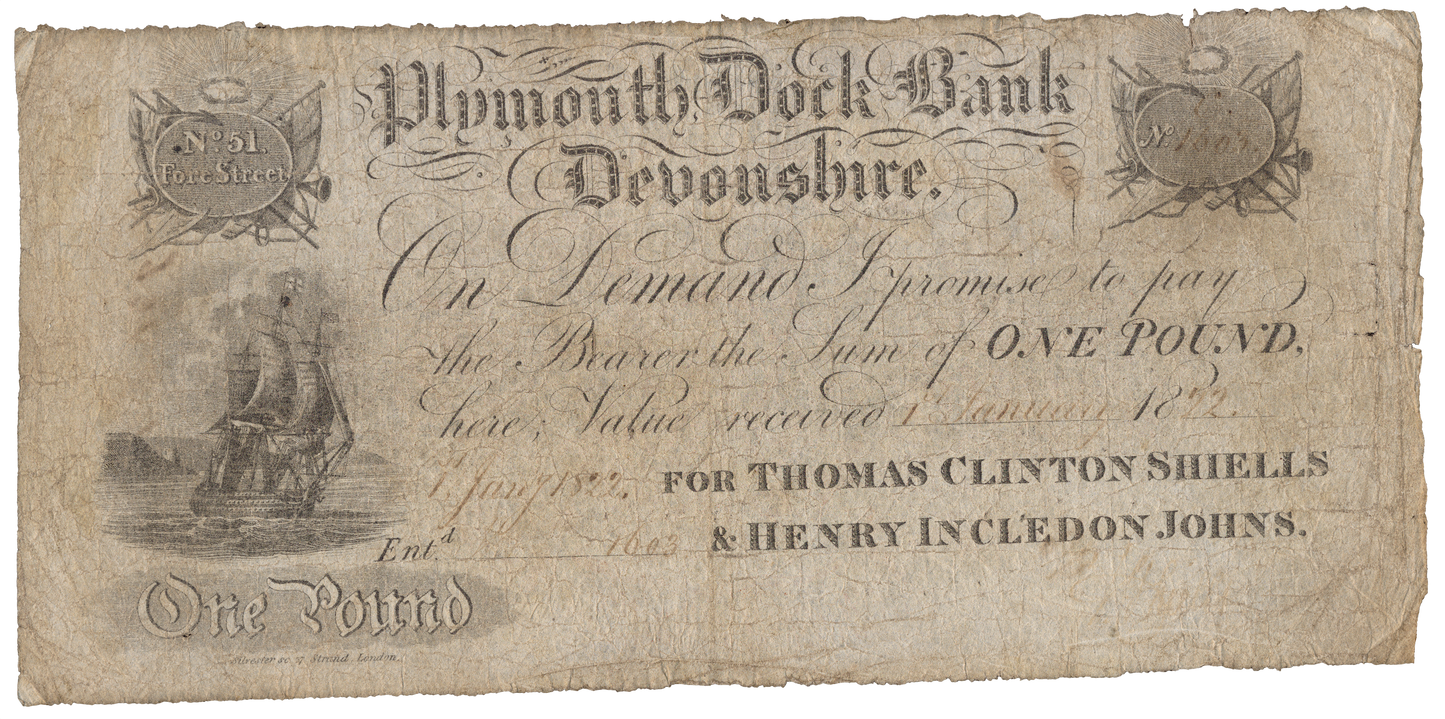 Plymouth Dock Bank
Devonshire.
No. 51,
Fore Street
No.
On Demand I promise to pay
the Bearer the Sum of ONE POUND,
here; Value received 1st January 1822.
1st Jany 1822.
FOR THOMAS CLINTON SHIELLS
& HENRY INCLEDON JOHNS.
Ent.d
One Pound
Silvester sc. 27 Strand, London.